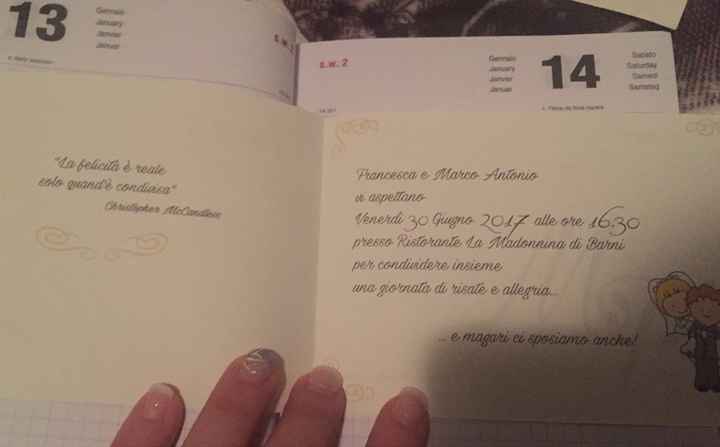 13
Gennaio
January
Janvier
Januar
s.w. 2
s.w. 2
Gennaio
January
Janvier
Januar
14
Sabato
Saturday
Samedi
Samstag
"La felicità è reale
solo quand'è condivisa"
Christopher McCandless
Francesca e Marco Antonio
vi aspettano
Venerdì 30 Giugno 2017 alle ore 16:30
presso Ristorante La Madonnina di Barni
per condividere insieme
una giornata di risate e allegria...
... e magari ci sposiamo anche!